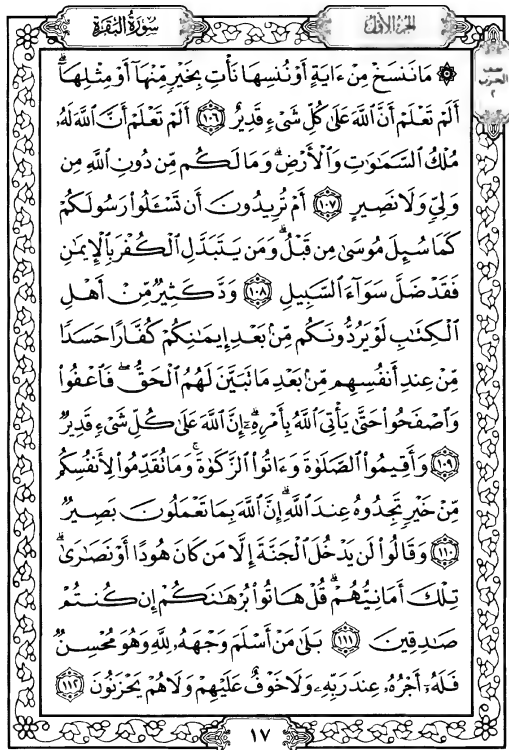 سُورَةُ البَقَرَةِ
الجُزْءُ الأَوَّلُ
نصف
الحزب
٢
۞ مَا نَنسَخْ مِنْ ءَايَةٍ أَوْ نُنسِهَا نَأْتِ بِخَيْرٍ مِّنْهَآ أَوْ مِثْلِهَآ ۗ
أَلَمْ تَعْلَمْ أَنَّ ٱللَّهَ عَلَىٰ كُلِّ شَىْءٍ قَدِيرٌ ١٠٦ أَلَمْ تَعْلَمْ أَنَّ ٱللَّهَ لَهُۥ
مُلْكُ ٱلسَّمَـٰوَٰتِ وَٱلْأَرْضِ ۗ وَمَا لَكُم مِّن دُونِ ٱللَّهِ مِن
وَلِىٍّ وَلَا نَصِيرٍ ١٠٧ أَمْ تُرِيدُونَ أَن تَسْـَٔلُوا۟ رَسُولَكُمْ
كَمَا سُئِلَ مُوسَىٰ مِن قَبْلُ ۗ وَمَن يَتَبَدَّلِ ٱلْكُفْرَ بِٱلْإِيمَـٰنِ
فَقَدْ ضَلَّ سَوَآءَ ٱلسَّبِيلِ ١٠٨ وَدَّ كَثِيرٌ مِّنْ أَهْلِ
ٱلْكِتَـٰبِ لَوْ يَرُدُّونَكُم مِّنۢ بَعْدِ إِيمَـٰنِكُمْ كُفَّارًا حَسَدًا
مِّنْ عِندِ أَنفُسِهِم مِّنۢ بَعْدِ مَا تَبَيَّنَ لَهُمُ ٱلْحَقُّ ۖ فَٱعْفُوا۟
وَٱصْفَحُوا۟ حَتَّىٰ يَأْتِىَ ٱللَّهُ بِأَمْرِهِۦٓ ۗ إِنَّ ٱللَّهَ عَلَىٰ كُلِّ شَىْءٍ قَدِيرٌ
١٠٩ وَأَقِيمُوا۟ ٱلصَّلَوٰةَ وَءَاتُوا۟ ٱلزَّكَوٰةَ ۚ وَمَا تُقَدِّمُوا۟ لِأَنفُسِكُم
مِّنْ خَيْرٍ تَجِدُوهُ عِندَ ٱللَّهِ ۗ إِنَّ ٱللَّهَ بِمَا تَعْمَلُونَ بَصِيرٌ
١١٠ وَقَالُوا۟ لَن يَدْخُلَ ٱلْجَنَّةَ إِلَّا مَن كَانَ هُودًا أَوْ نَصَـٰرَىٰ ۗ
تِلْكَ أَمَانِيُّهُمْ ۗ قُلْ هَاتُوا۟ بُرْهَـٰنَكُمْ إِن كُنتُمْ
صَـٰدِقِينَ ١١١ بَلَىٰ مَنْ أَسْلَمَ وَجْهَهُۥ لِلَّهِ وَهُوَ مُحْسِنٌ
فَلَهُۥٓ أَجْرُهُۥ عِندَ رَبِّهِۦ وَلَا خَوْفٌ عَلَيْهِمْ وَلَا هُمْ يَحْزَنُونَ ١١٢
١٧